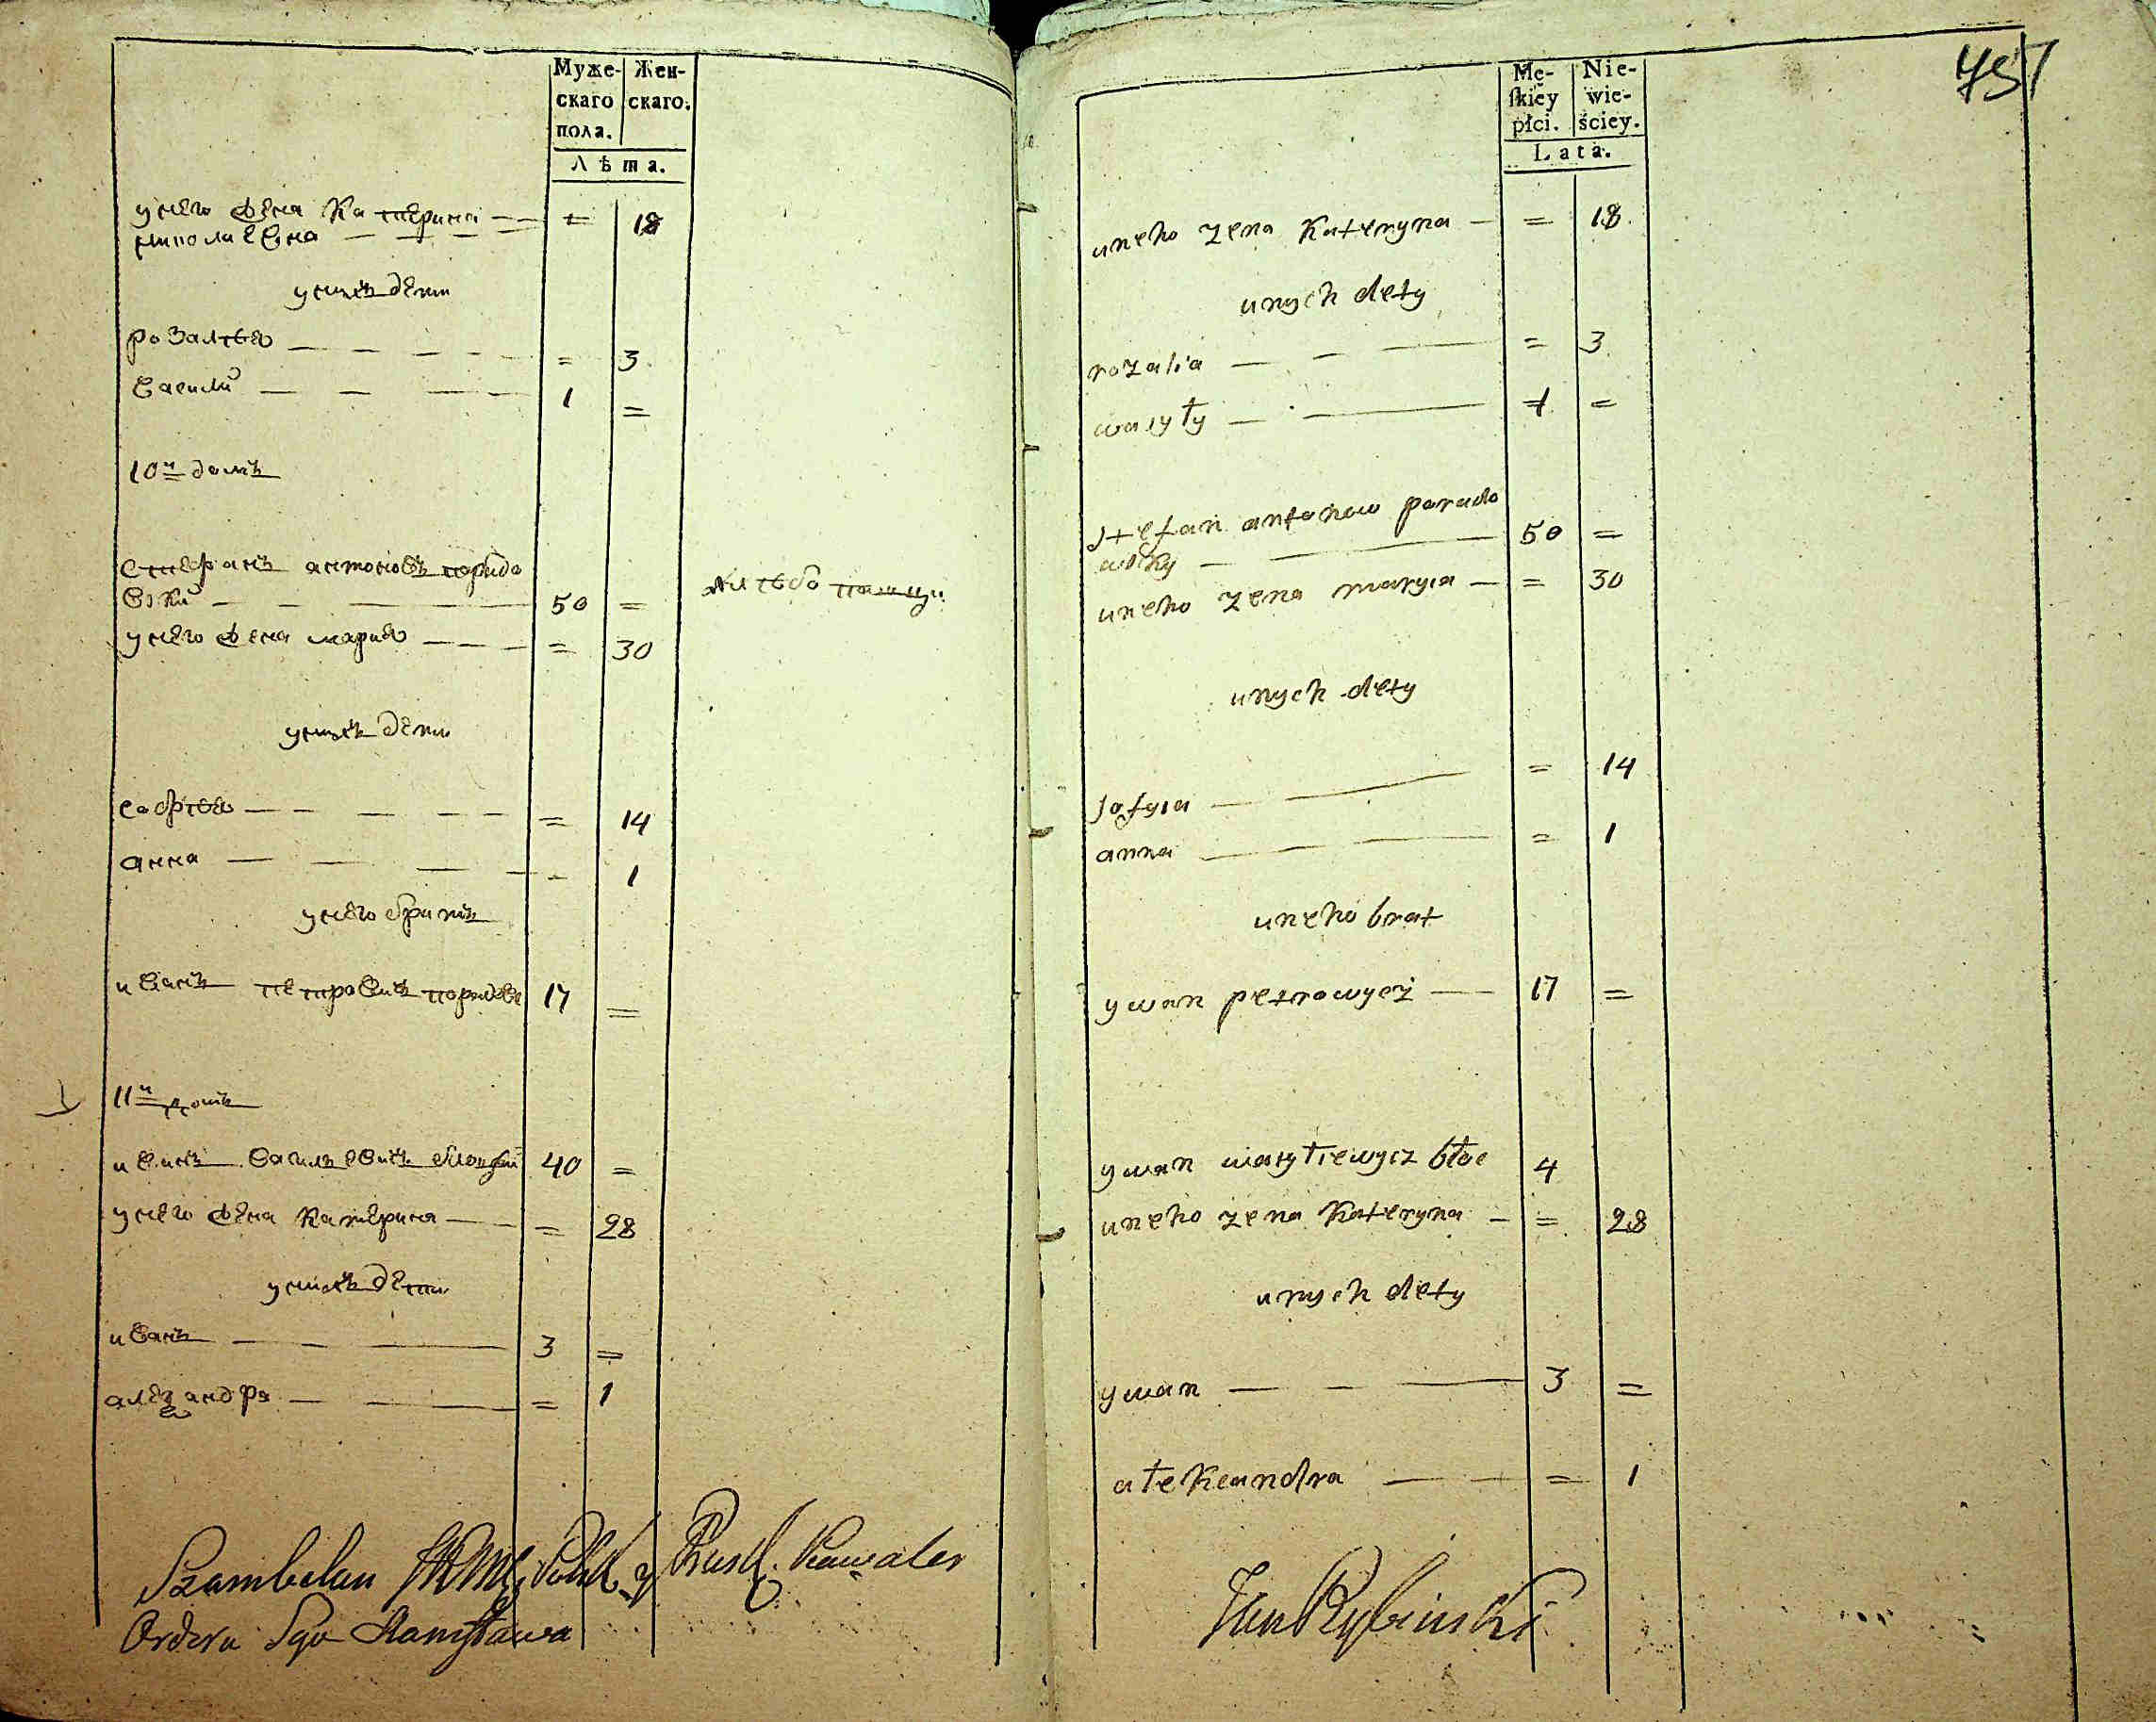 Муже-
скаго
пола.
Жен-
скаго.
Лѣта.
у него жена Катерина — — = 18
николаевна — — — —
у нихъ дети
розалъя — — — — — = 3
василий — — — — 1 =
10й домъ
стефанъ антоновъ парадо
вски — — — — — 50 = хлѣбо пашец
у него жена мария — — — = 30
у нихъ дети
софъя — — — — — = 14
анна — — — — - 1
у него братъ
иванъ петровичъ 17 =
11й домъ
иванъ васильевичъ 40 =
у него жена катерина — — = 28
у нихъ дети
иванъ — — — 3 =
александра — — — = 1
Szambelan Kawaler
Ordera Sgo Stanisława
757
Mę-
ſkiey
płci.
Nie-
wie-
ściey.
Lata.
uneho zena Kateryna — = 18
unych dety
rozalia — — — = 3
wasyły — — 1 =
stefan antonow parado
wsky — — 50 =
uneho zena maryia — = 30
unych dety
sofyia — — = 14
anna — — — = 1
uneho brat
ywan petrowycz — 17 =
ywan wasyliewycz błoc 4
uneho zena Kateryna — = 28
unych dety
ywan — — — 3 =
ałekcandra — — = 1
Jan Rybinski